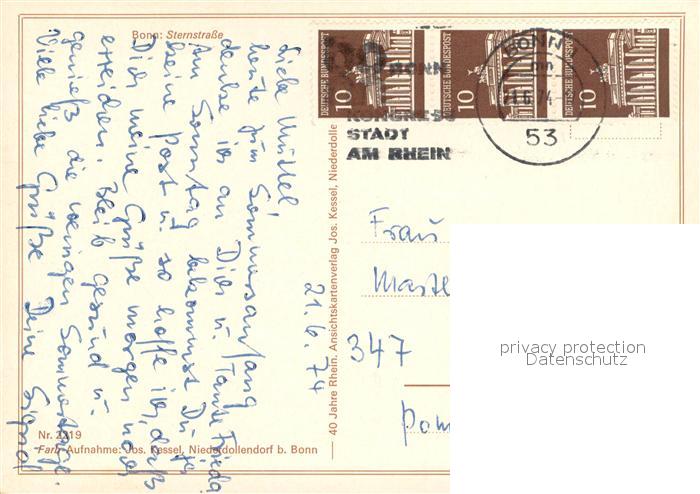 Bonn: Sternstraße
Liebe Muttel
heute zum Sommersanfang
denke ich an Dich u. Tante Frieda
Am Sonntag bekommst Du ja
keine Post u. so hoffe ich, daß
Dich meine Grüße morgen noch
erreichen. Bleib gesund u.
genieß die wenigen Sommertage.
Viele liebe Grüße Deine Sigrid
21.6.74
Nr. 2219
Farb-Aufnahme: Jos. Kessel, Niederdollendorf b. Bonn
40 Jahre Rhein. Ansichtskartenverlag Jos. Kessel, Niederdolle
DEUTSCHE BUNDESPOST
10
DEUTSCHE BUNDESPOST
10
DEUTSCHE BUNDESPOST
10
BONN
KONGRESS
STADT
AM RHEIN
BONN
mn
21.6.74
53
Frau
347
privacy protection
Datenschutz